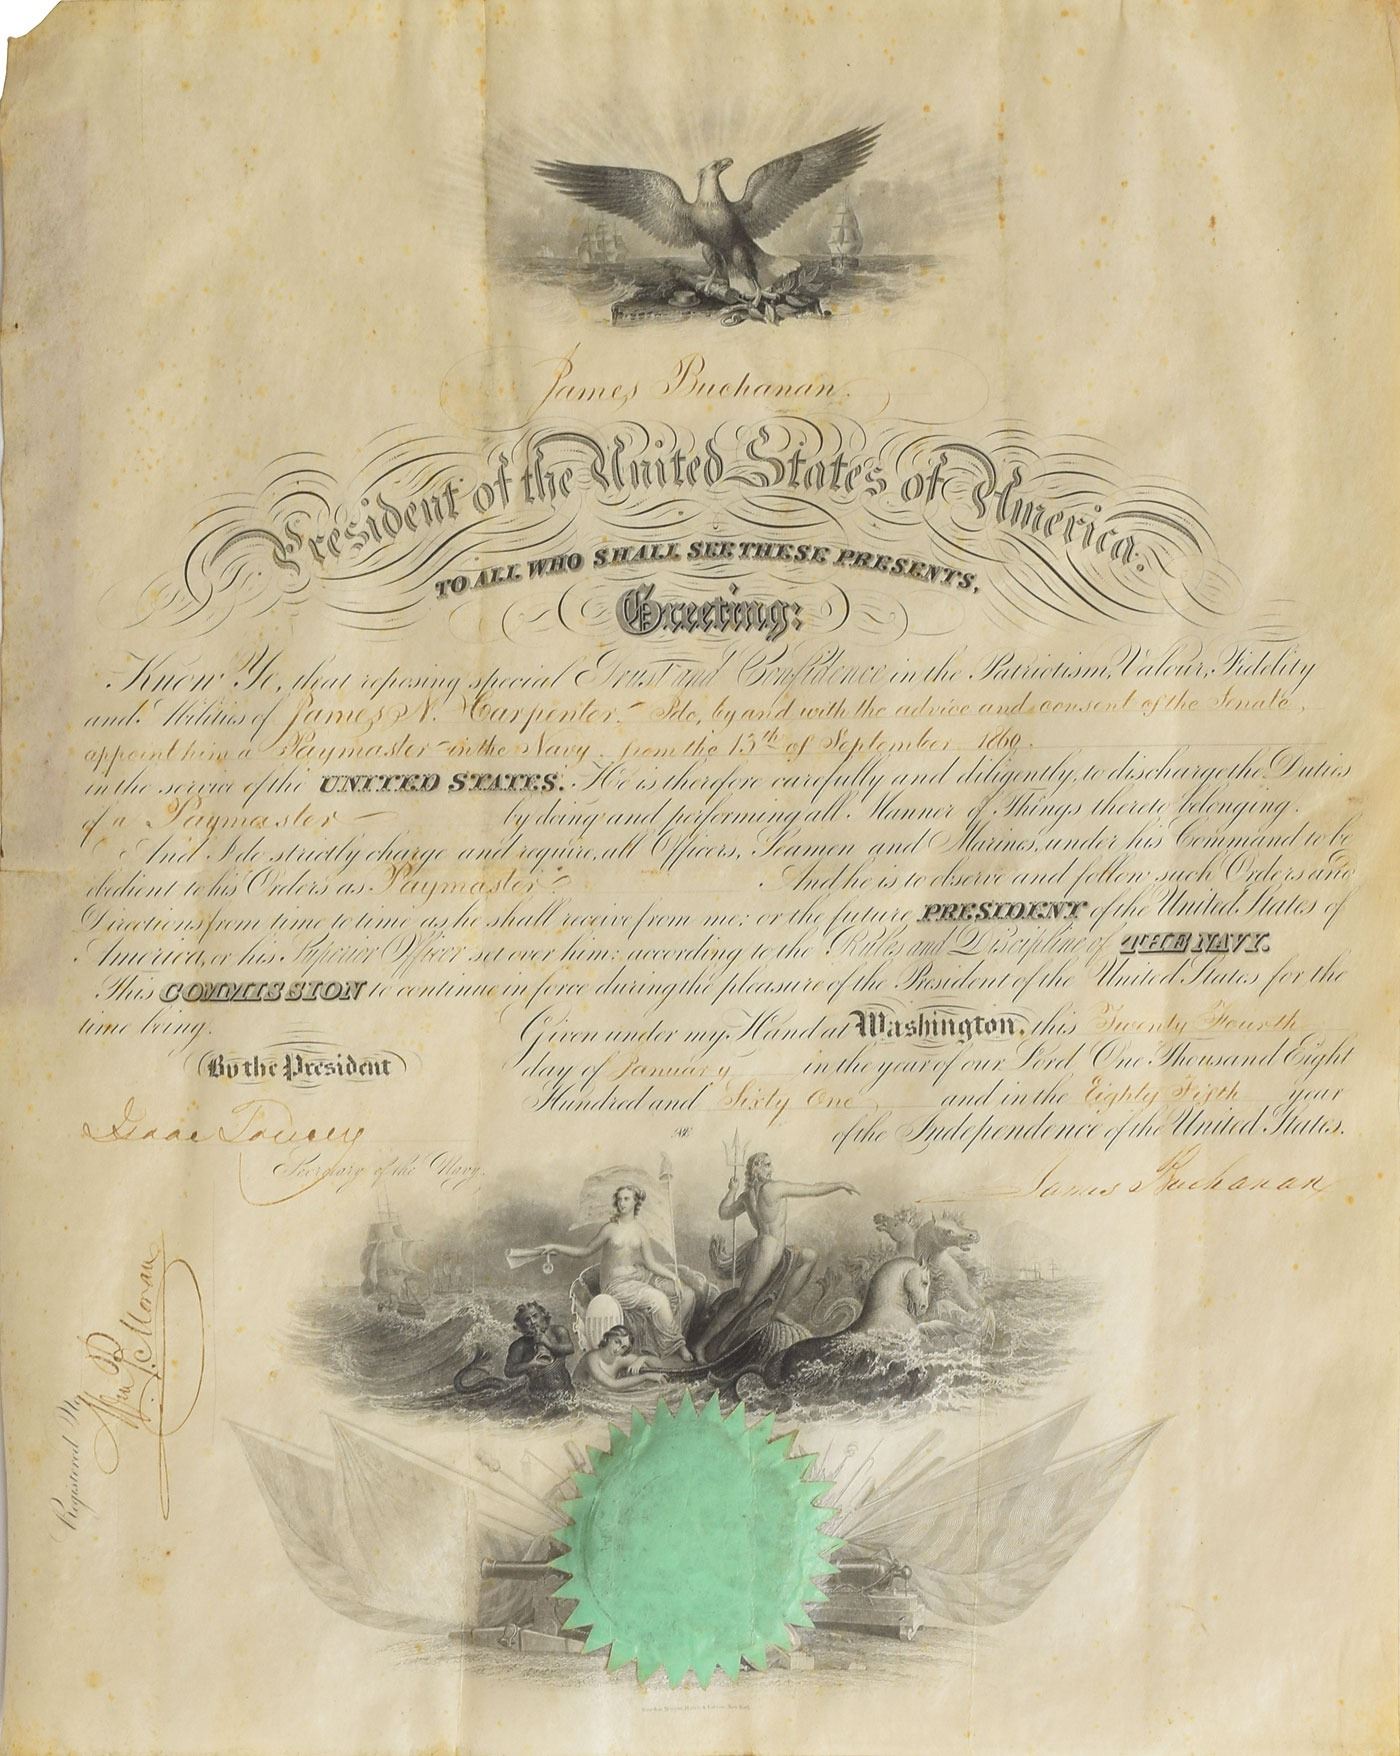 James Buchanan.
President of the United States of America.
TO ALL WHO SHALL SEE THESE PRESENTS,
Greeting:
Know Ye, that reposing special Trust and Confidence in the Patriotism, Valour, Fidelity
and Abilities of James N. Carpenter I do, by and with the advice and consent of the Senate,
appoint him a Paymaster in the Navy from the 13th of September 1860.
in the service of the UNITED STATES. He is therefore carefully and diligently, to discharge the Duties
of a Paymaster by doing and performing all Manner of Things thereto belonging.
And I do strictly charge and require, all Officers, Seamen and Marines, under his Command to be
obedient to his Orders as Paymaster And he is to observe and follow such Orders and
Directions from time to time as he shall receive from me: or the future PRESIDENT of the United States of
America, or his Superior Officer set over him: according to the Rules and Discipline of THE NAVY.
This COMMISSION to continue in force during the pleasure of the President of the United States for the
time being.
Given under my Hand at Washington, this Twenty Fourth
day of January in the year of our Lord, One Thousand Eight
Hundred and Sixty One and in the Eighty Fifth year
of the Independence of the United States.
By the President
Isaac Toucey
Secretary of the Navy.
James Buchanan
Registered No
Wm P. S. Moran